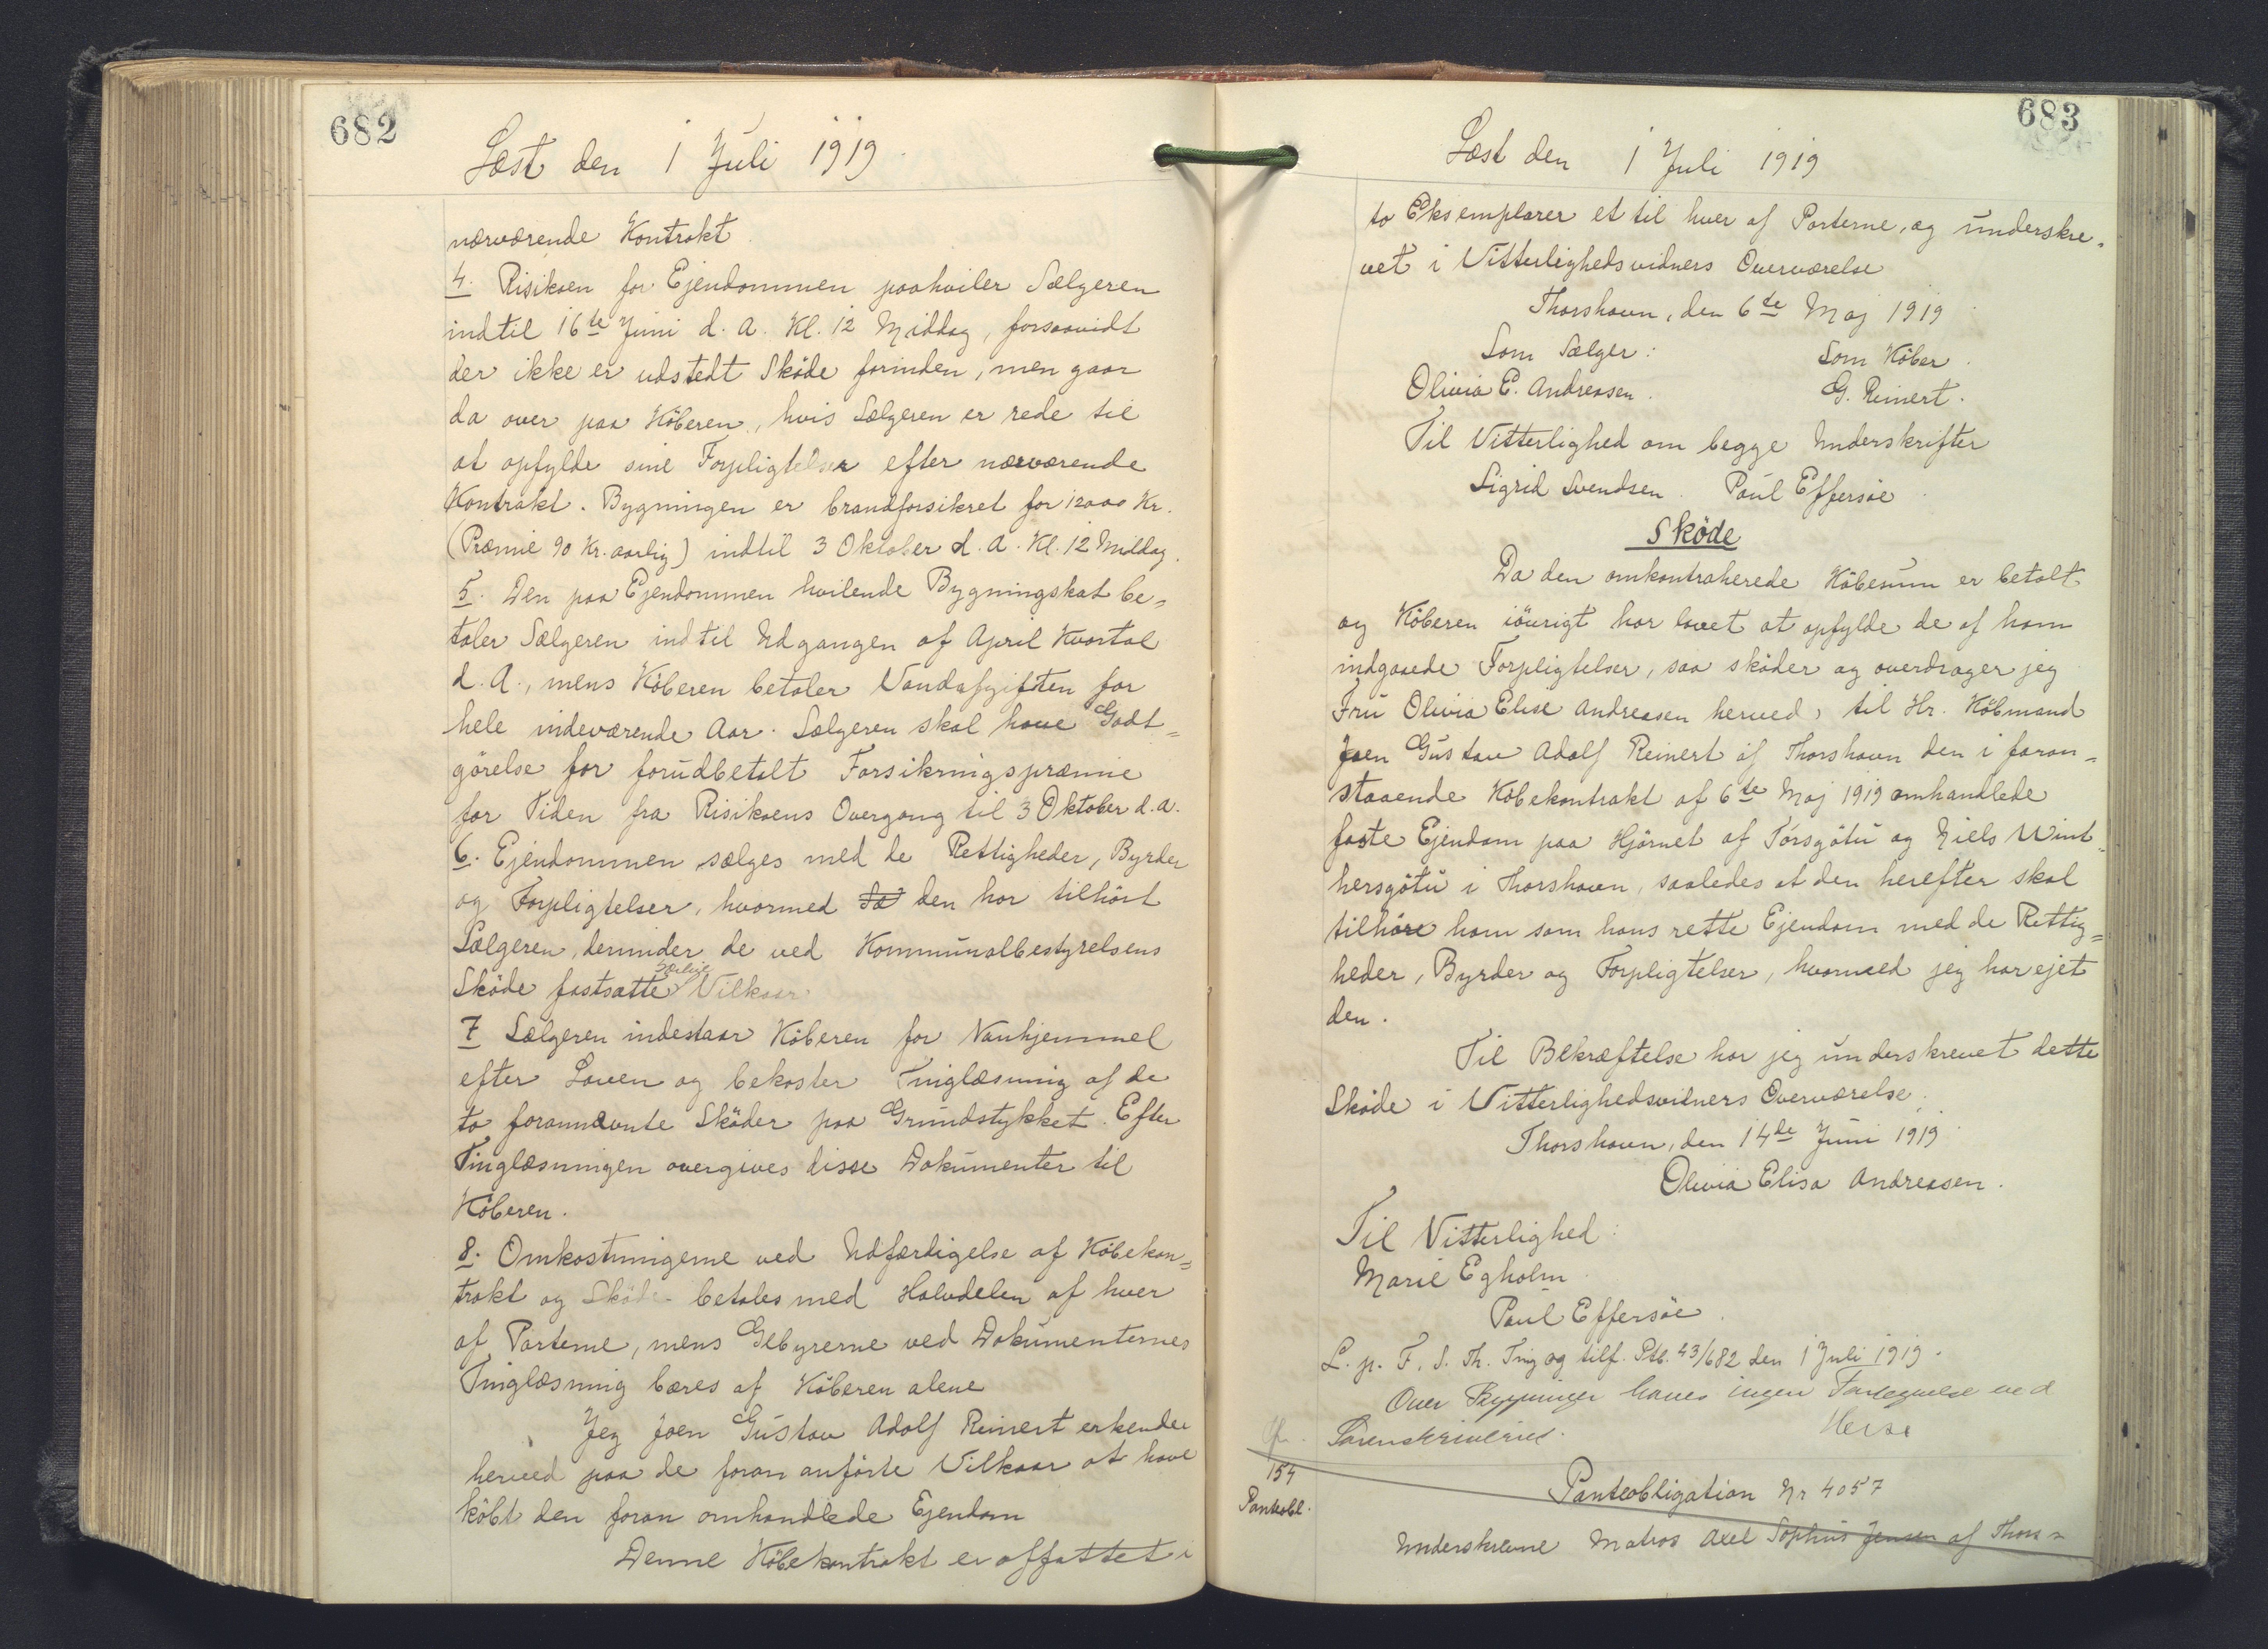 682
Læst den 1 Juli 1919.
nærværende Kontrakt.
4. Risikoen for Ejendommen paahviler Sælgeren
indtil 16te Juni d. A. Kl. 12 Middag, forsaavidt
der ikke er udstedt Sköde forinden, men gaar
da over paa Köberen, hvis Sælgeren er rede til
at opfylde sine Forpligtelser efter nærværende
Kontrakt. Bygningen er brandforsikret for 12000 Kr.
(Præmie 90 Kr. aarlig) indtil 3 Oktober d. A. Kl. 12 Middag.
5. Den paa Ejendommen hvilende Bygningskat be=
taler Sælgeren indtil Udgangen af April Kvartal
d. A., mens Köberen betaler Vandafgiften for
hele indeværende Aar. Sælgeren skal have Godt=
görelse for forudbetalt Forsikringspræmie
for Tiden fra Risikoens Overgang til 3 Oktober d. A.
6. Ejendommen sælges med de Rettigheder, Byrder
og Forpligtelser, hvormed den har tilhört
Sælgeren, derunder de ved Kommunalbestyrelsens
Sköde fastsatte særlige Vilkaar.
7 Sælgeren indestaar Köberen for Vanhjemmel
efter Loven og bekoster Tinglæsning af de
to forannævnte Sköder paa Grundstykket. Efter
Tinglæsningen overgives disse Dokumenter til
Köberen.
8. Omkostningerne ved Udfærdigelse af Köbekon=
trakt og Sköde betales med Halvdelen af hver
af Parterne, mens Gebyrerne ved Dokumenternes
Tinglæsning bæres af Köberen alene
Jeg Joen Gustav Adolf Reinert erkender
herved paa de foran anförte Vilkaar at have
köbt den foran omhandlede Ejendom
Denne Köbekontrakt er affattet i
683
Læst den 1 Juli 1919
to Eksemplarer et til hver af Parterne, og underskre=
vet i Vitterlighedsvidners Overværelse
Thorshavn, den 6te Maj 1919
Som Sælger: Som Köber.
Olivia E. Andreasen. G. Reinert.
Til Vitterlighed om begge Underskrifter
Sigrid Svendsen. Paul Effersöe.
Sköde
Da den omkontraherede Köbesum er betalt
og Köberen iövrigt har lovet at opfylde de af ham
indgaaede Forpligtelser, saa sköder og overdrager jeg
Fru Olivia Elise Andreasen herved, til Hr. Köbmand
Joen Gustav Adolf Reinert af Thorshavn den i foran=
staaende Köbekontrakt af 6te Maj 1919 omhandlede
faste Ejendom paa Hjörnet af Tórsgötu og Niels Wint=
hersgötu i Thorshavn, saaledes at den herefter skal
tilhöre ham som hans rette Ejendom med de Rettig=
heder, Byrder og Forpligtelser, hvormed jeg har ejet
den.
Til Bekræftelse har jeg underskrevet dette
Sköde i Vitterlighedsvidners Overværelse.
Thorshavn, den 14de Juni 1919
Olivia Elisa Andreasen.
Til Vitterlighed:
Marie Egholm
Paul Effersöe.
L. p. F. S. Th. Ting og tilf. Ptb. 43/682 den 1 Juli 1919.
Over Bygninger haves ingen Fortegnelse ved
Sorenskriveriet.
154
Pantobl.
Pantobligation Nr 4057
Underskrevne Matros Axel Sophus Jensen af Thors=